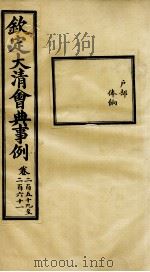 欽定大清會典事例 卷二百五十九至二百六十一
戶部
俸餉